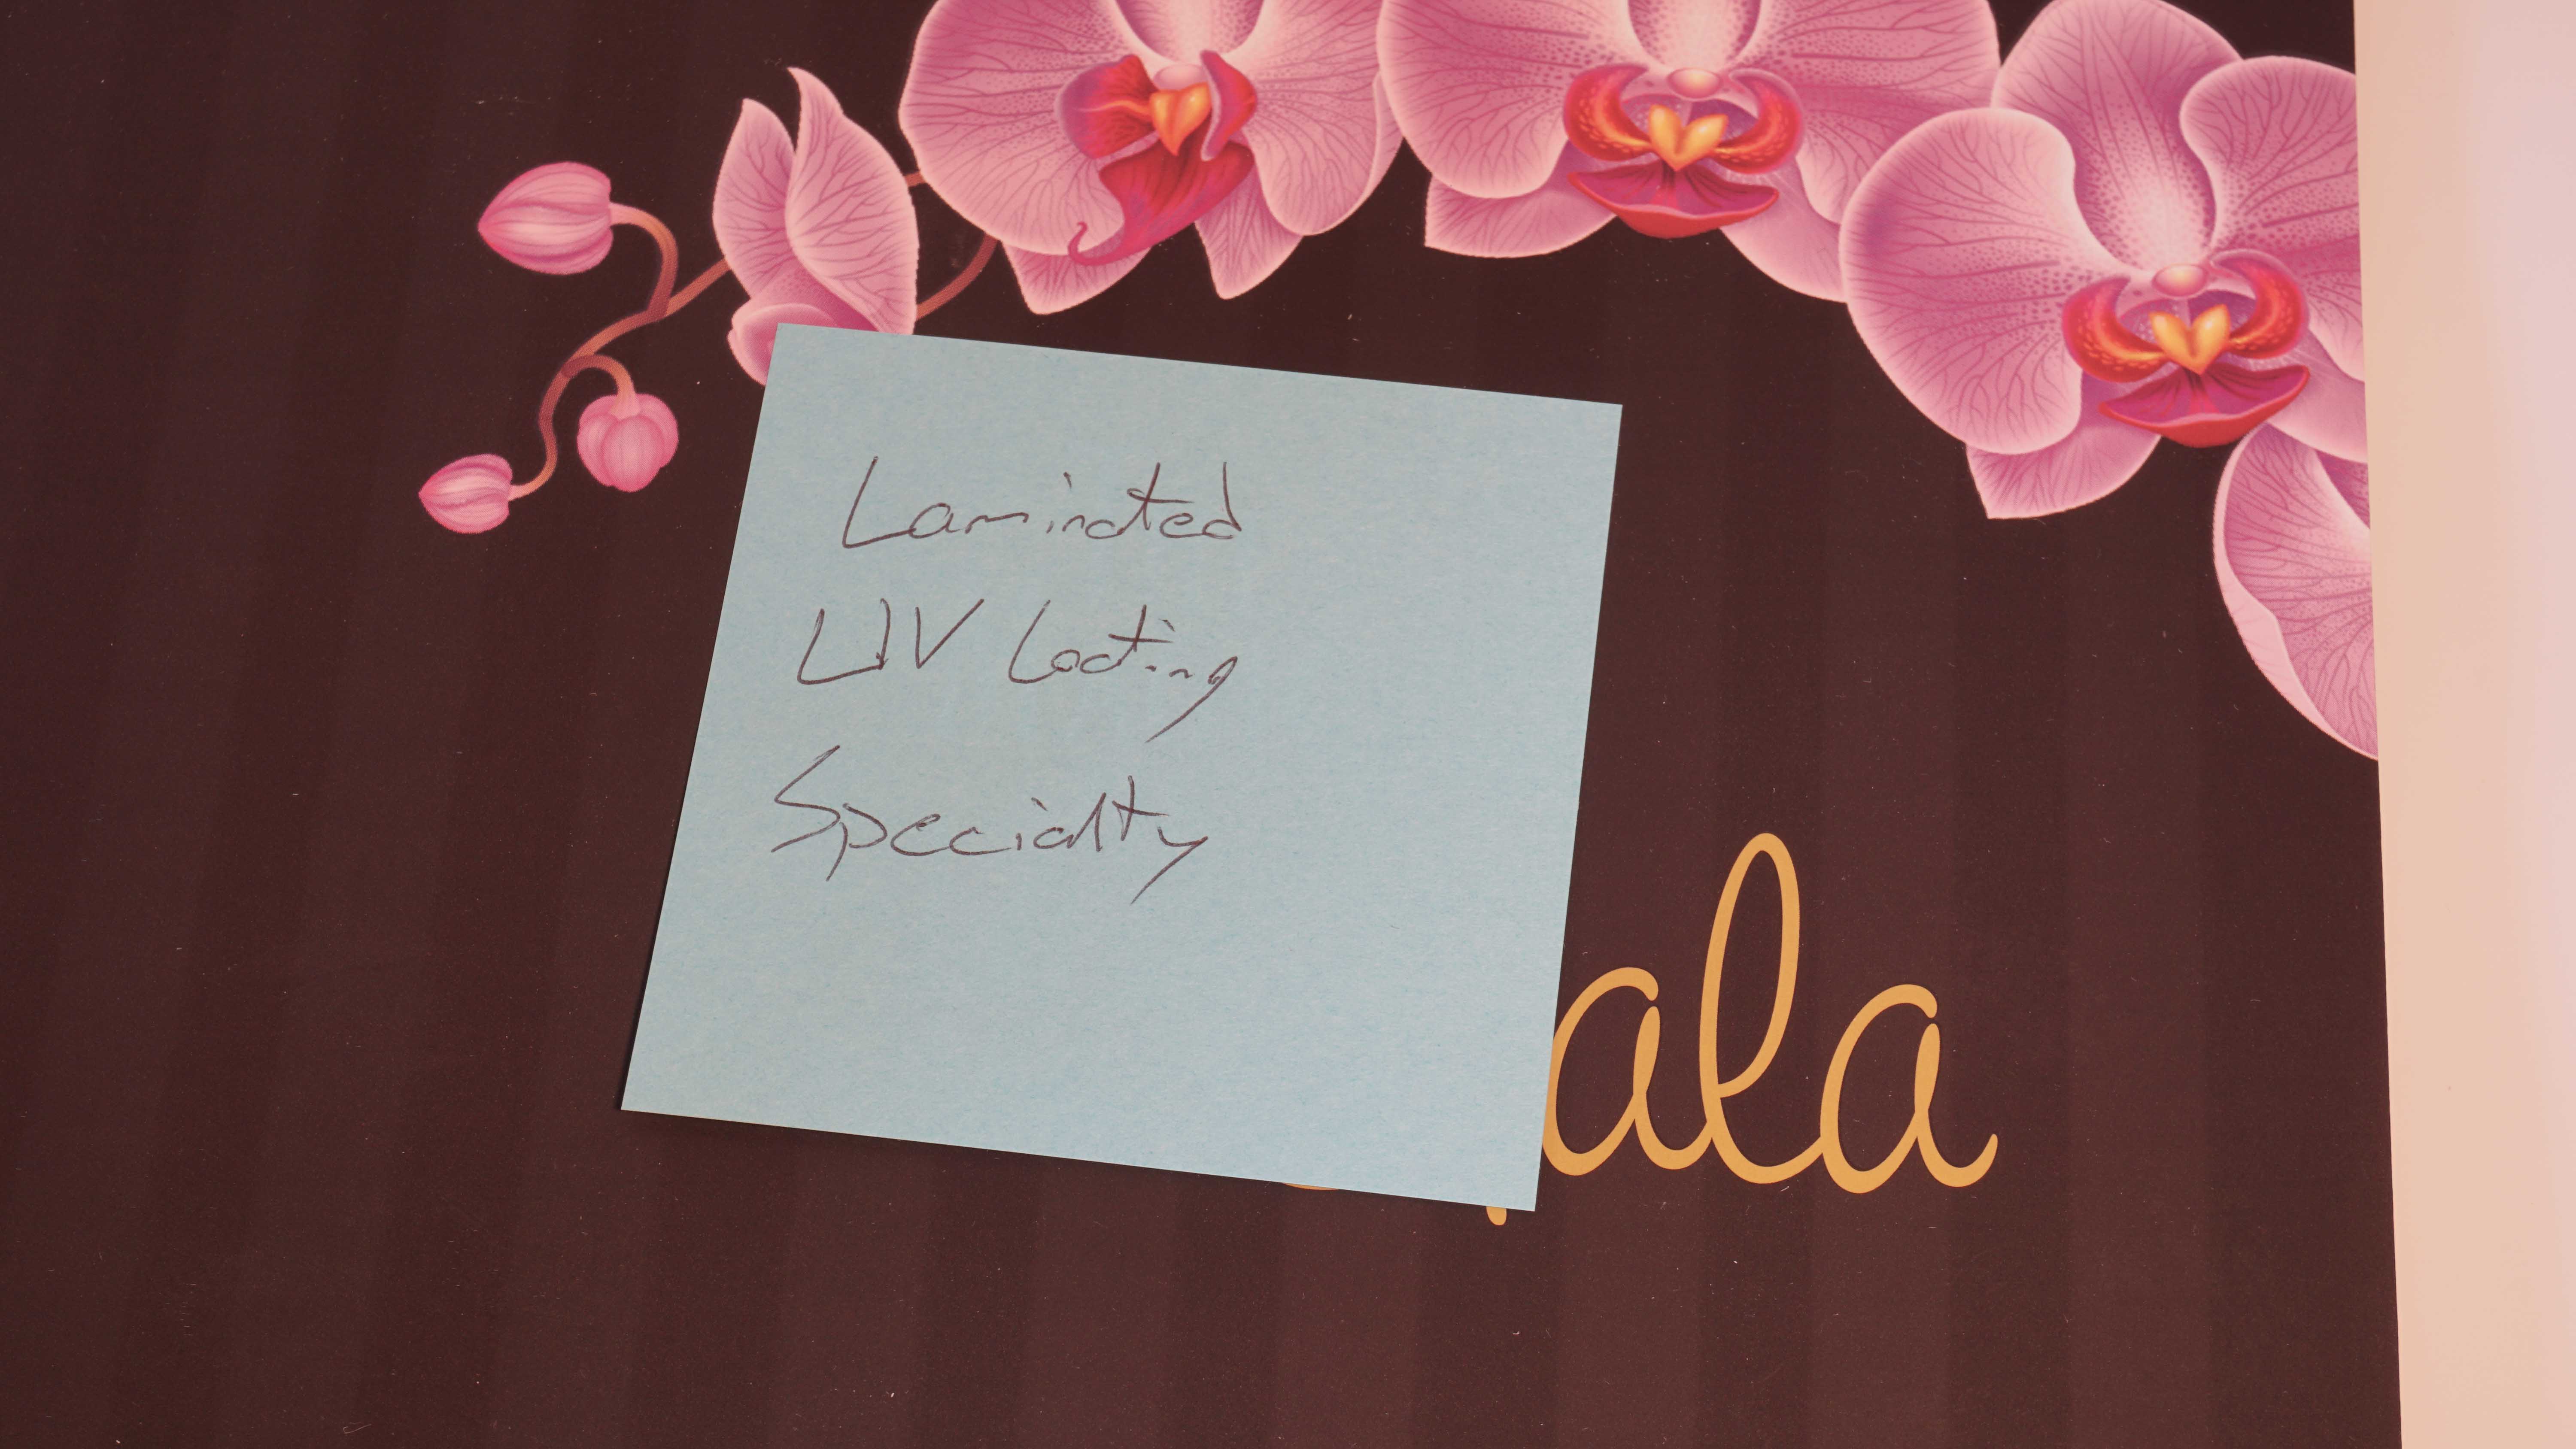 Laminated
UV Coating
Specialty
ala